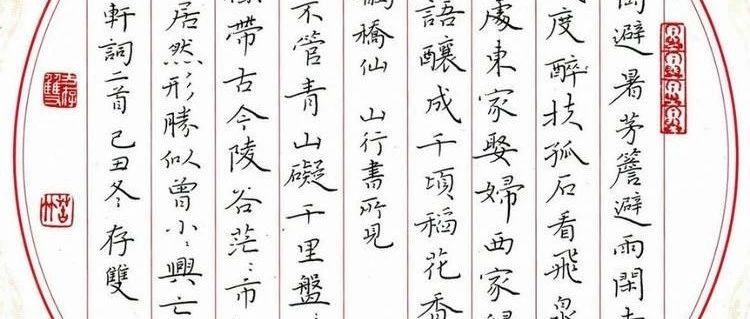 避暑茅簷避雨閑
度醉扶孤石看飛泉
處東家娶婦西家
語釀成千頃稻花香
橋仙 山行書所見
不管青山礙千里盤〻
帶古今陵谷茫〻市
居然形勝似曾小〻興亡
軒詞二首己丑冬存雙